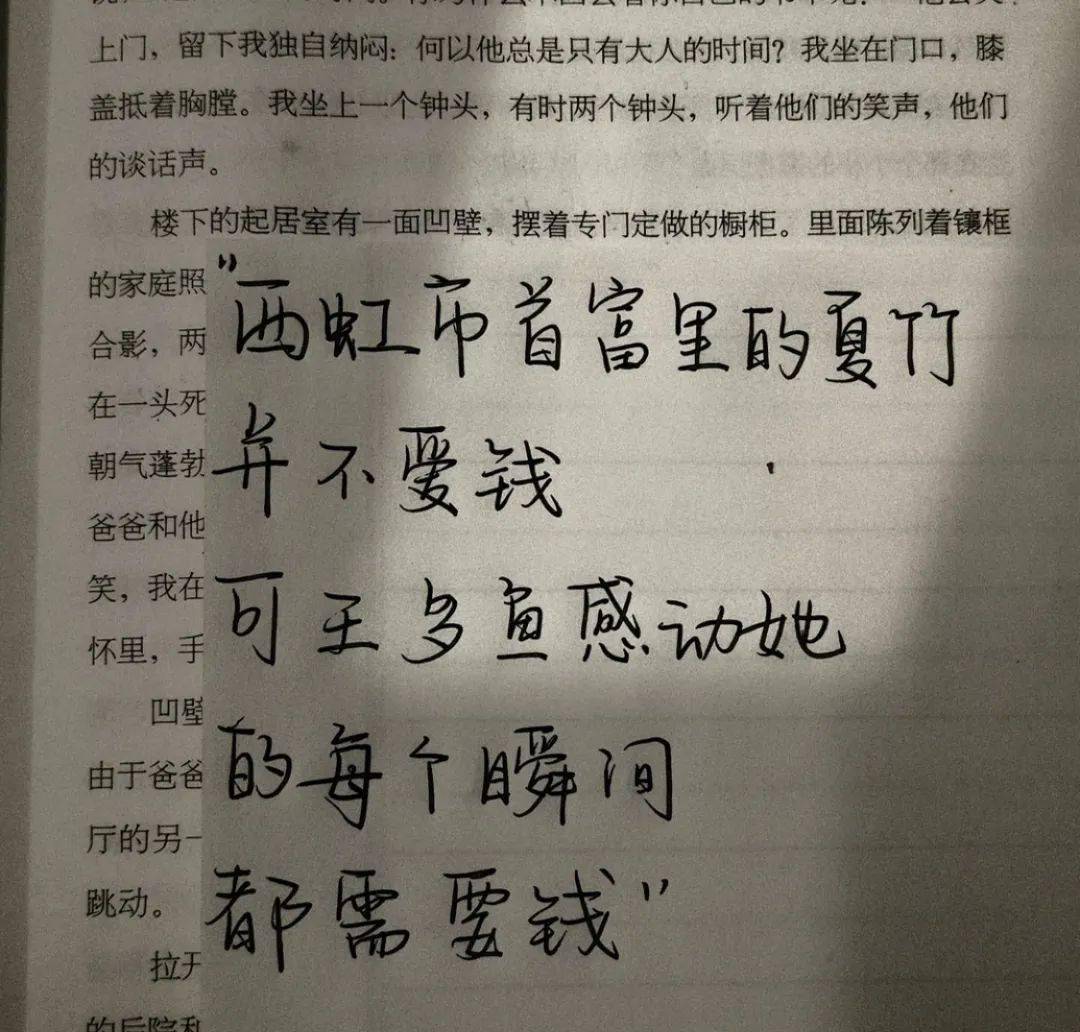 上门，留下我独自纳闷：何以他总是只有大人的时间？我坐在门口，膝
盖抵着胸膛。我坐上一个钟头，有时两个钟头，听着他们的笑声，他们
的谈话声。
楼下的起居室有一面凹壁，摆着专门定做的橱柜。里面陈列着镶框
的家庭照
合影，两
在一头死
朝气蓬勃
爸爸和他
笑，我在
怀里，手
凹壁
由于爸爸
厅的另一
跳动。
拉开
的后院和
"西虹市首富里的夏竹
并不爱钱
可王多鱼感动她
的每个瞬间
都需要钱"